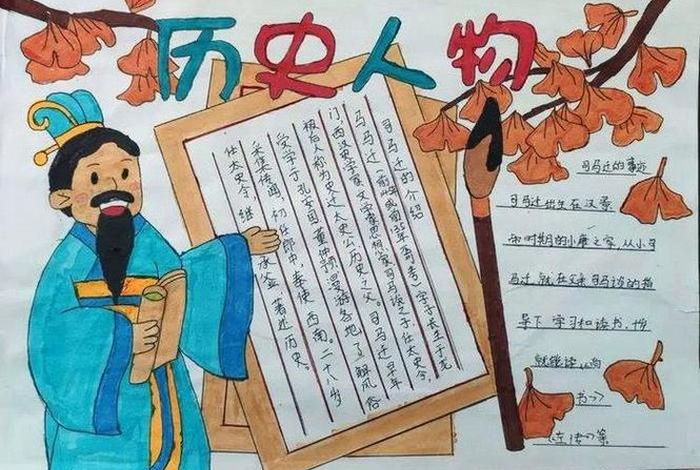 历史人物
司马迁的介绍
司马迁（前 年或前135年 不可考）字子长生于龙
门，西汉史学家文学家思想家司马谈之子，任太史令，
被后人称为史迁太史公历史之父。司马迁早年
受学于孔安国董仲舒漫游各地，了解风俗
采集传闻，初任郎中，奉使西南。二十八岁
任太史令，继承 ，著述历史。
司马迁的事迹
司马迁出生在汉景
帝时期的小康之家，从小司
马迁就在父亲司马谈的指
导下学习和读书，
就能读
书>>